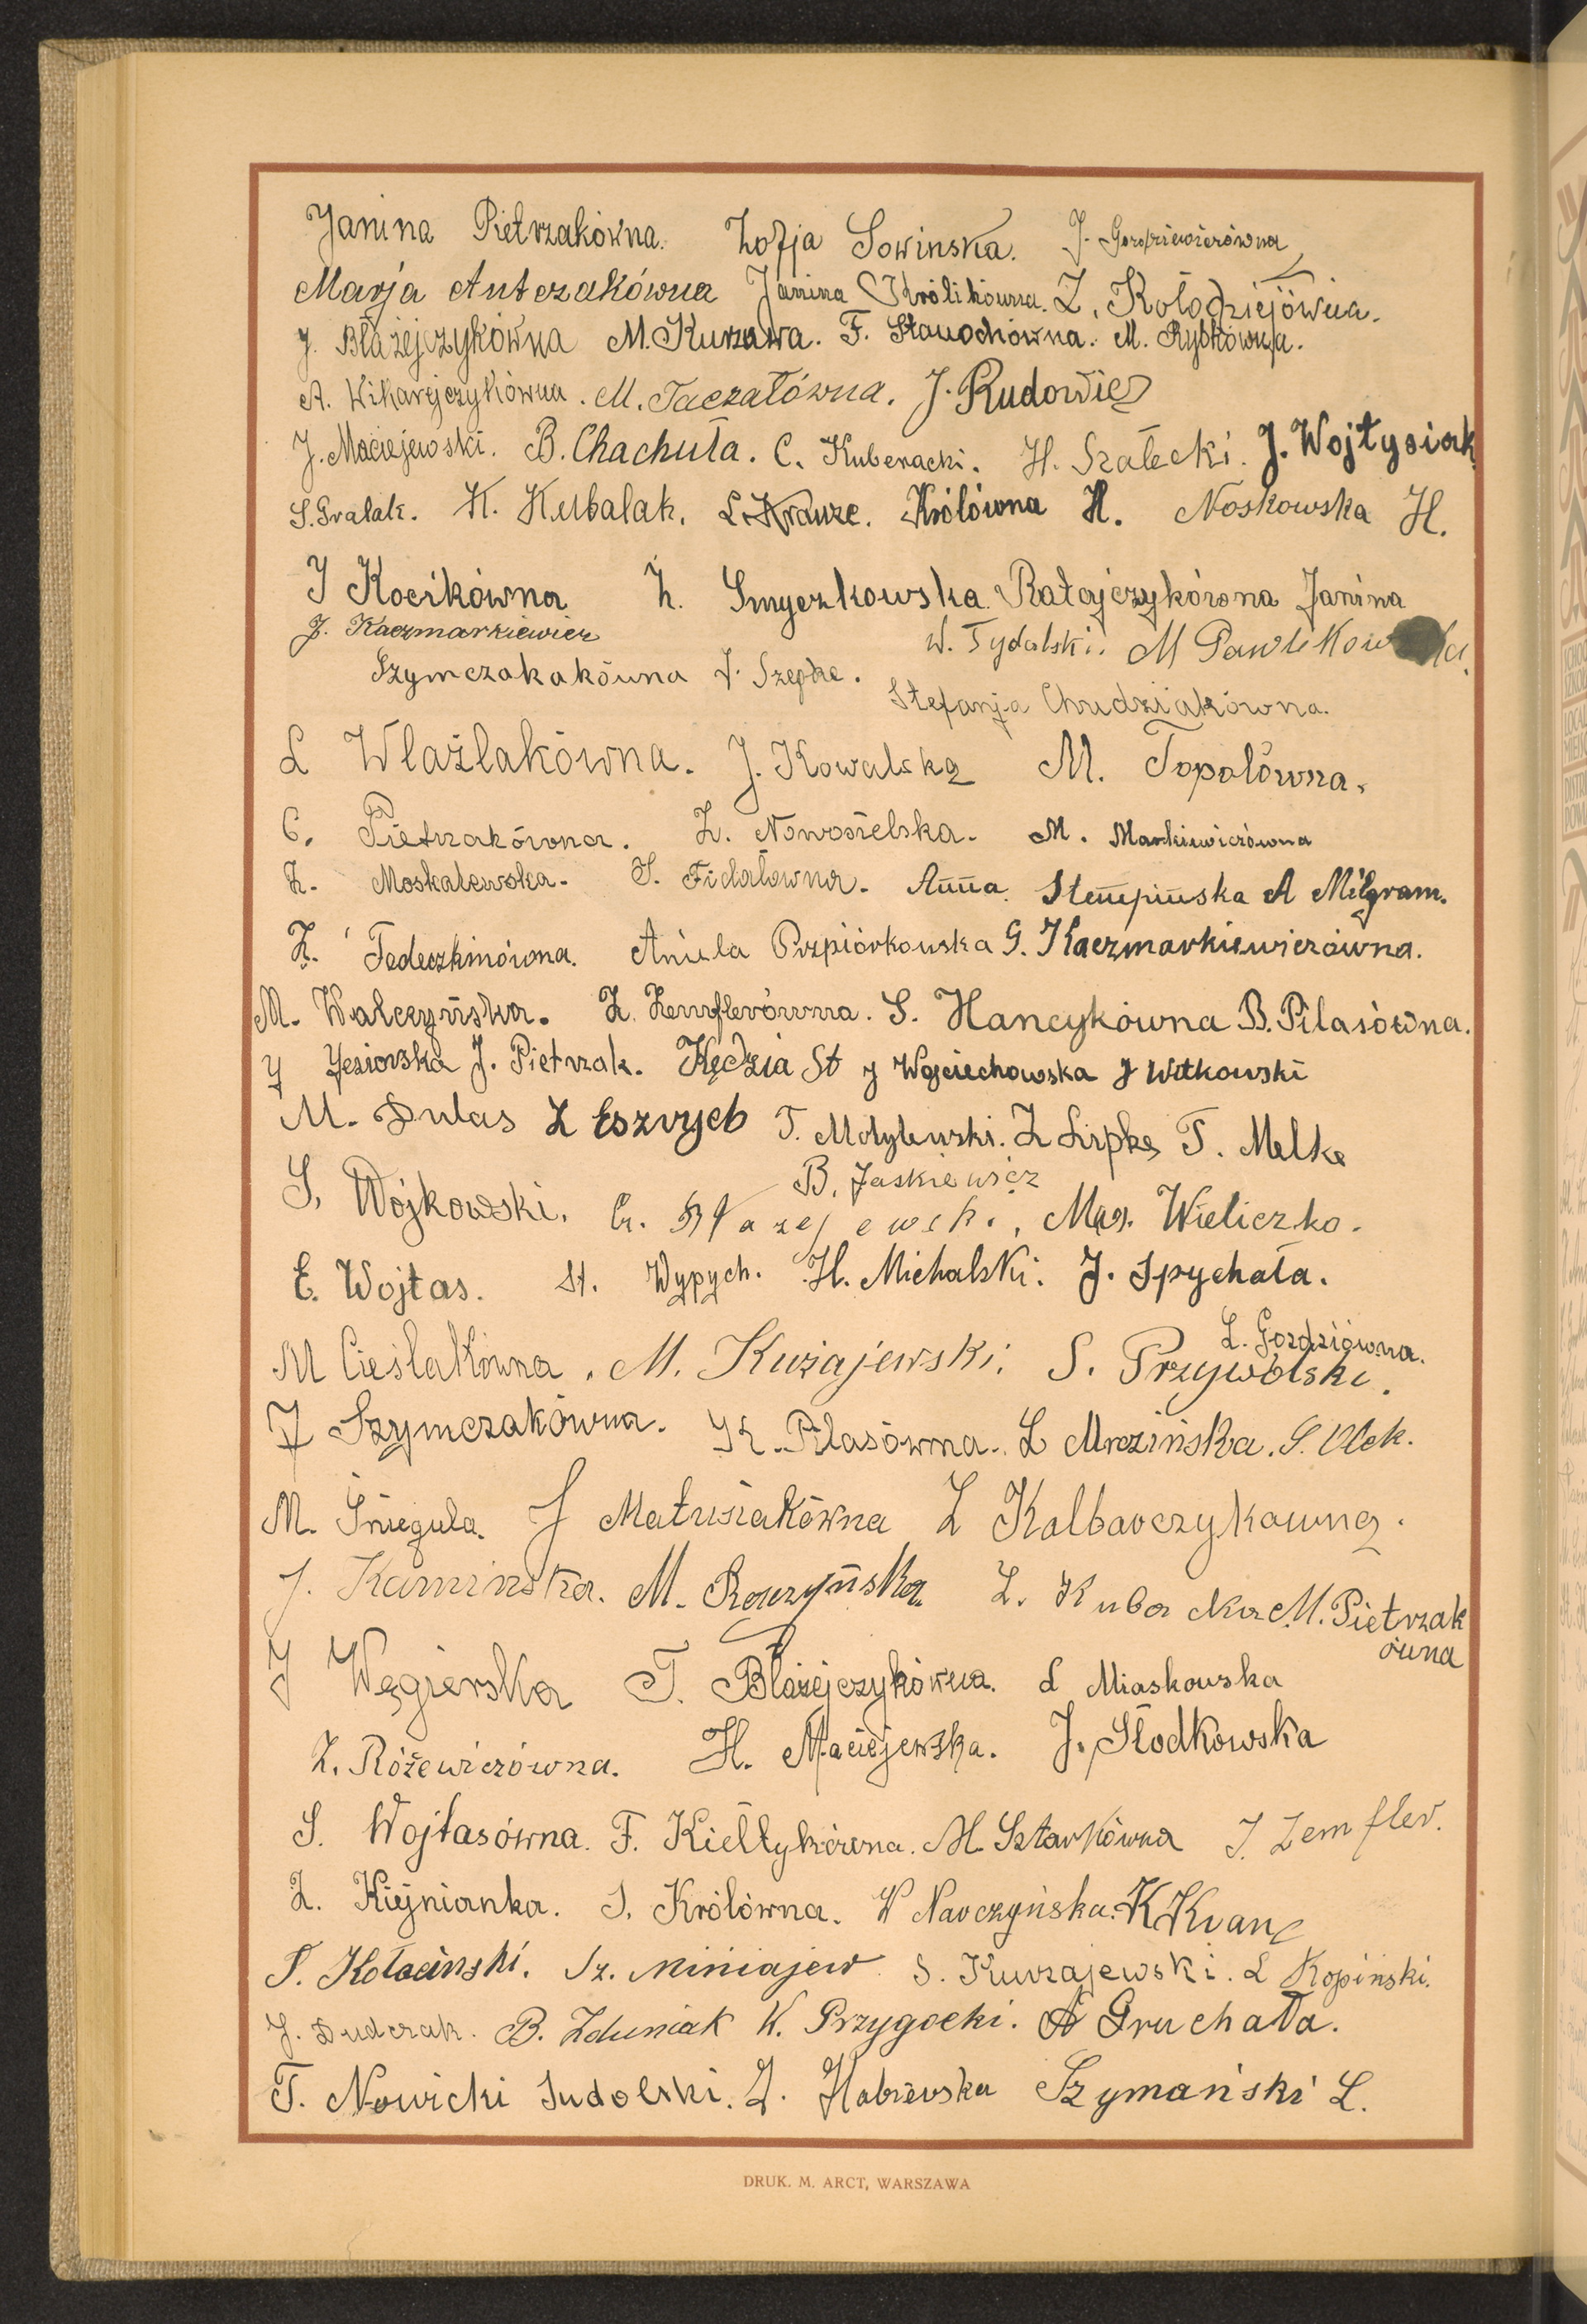 Janina Pietrzakówna. Zofja Sowinska. J.
Marja Antczakówna Janina Królikówna. Z. Kołodziejówna.
J. Błażejczykówna M. Kurzawa. F. Stauochówna. M. Rybkówna.
A. Wikarejczykówna. M. Taczałówna. J. Rudowicz
J. Maciejewski. B. Chachuła. C. Kuberacki. H. Szałecki. J. Wojtysiak.
S. Gralak. K. Kubalak. L. Krauze. Królówna H. Noskowska H.
J Kocikówna Z. Smyczkowska Ratajczykówna Janina
J. Kaczmarkiewicz W. Tydalski. M
Szymczakakówna J. Szepke. Stefanja Chudziakówna.
L Wlaźlakówna. J. Kowalska M. Topolówna.
C. Pietrzakówna. Z. Nowosielska. M. Markiewiczówna
Z. Moskalewska. S. Fidalówna. Anna Stempińska A Milgram.
Z. Aniela Przpiórkowska G. Kaczmarkiewiczówna.
M. Walczyńska. Z. Zemflerówna. S. Hancykówna B. Pilasówna.
J Jeziorska J. Pietrzak. Kędzia St J Wojciechowska J Witkowski
M. Dulas Z Eszrych T. Motylewski. Z Lipke T. Melke
B. Jaskiewicz
S. Wójkowski. Cz. Błażejewski. Mar. Wieliczko.
E. Wojtas. St. Wypych. H. Michalski. J. Spychała.
L. Gozdziówna.
M Cieślakówna. M. Kużajewski. S. Przywólski.
J Szymczakówna. K. Pilasówna. L Mrozińska. S. Olek.
M. Śniegula. J Matusiakówna Z Kalbarczykówna.
J. Kaminska. M. Roszyńska. Z. Kubacka M. Pietrzak
ówna
J Węgierska T. Błażejczykówna. L Miaskowska
Z. Różewiczówna. H. Maciejewska. J. Słodkowska
S. Wojtasówna. F. Kiełtykówna. M. Sztarkówna J. Zemfler.
Z. Kiejnianka. S. Królówna. W Narczyńska. K Kranc
S. Kołaciński. Sz. Miniajew S. Kurzajewski. L Kopiński.
J. Dudczak. B. Zduniak K. Przygocki. A Gruchała.
T. Nowicki Sudolski. Z. Habrewska Szymański L.
DRUK. M. ARCT, WARSZAWA